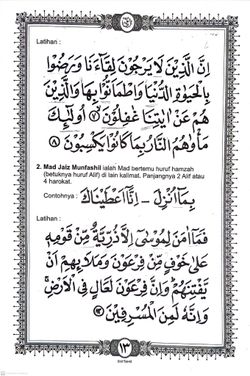 Latihan :
اِنَّ الَّذِيْنَ لَا يَرْجُوْنَ لِقَآءَنَا وَرَضُوْا
بِالْحَيٰوةِ الدُّنْيَا وَاطْمَاَنُّوْا بِهَا وَالَّذِيْنَ
هُمْ عَنْ اٰيٰتِنَا غٰفِلُوْنَ ۝٧ اُولٰٓئِكَ
مَأْوٰىهُمُ النَّارُ بِمَا كَانُوْا يَكْسِبُوْنَ ۝٨
2. Mad Jaiz Munfashil ialah Mad bertemu huruf hamzah
(betuknya huruf Alif) di lain kalimat. Panjangnya 2 Alif atau
4 harokat.
Contohnya : بِمَآ اُنْزِلَ – اِنَّآ اَعْطَيْنَاكَ
Latihan :
فَمَآ اٰمَنَ لِمُوْسٰٓى اِلَّا ذُرِّيَّةٌ مِّنْ قَوْمِهٖ
عَلٰى خَوْفٍ مِّنْ فِرْعَوْنَ وَمَلَا۟ئِهِمْ اَنْ
يَّفْتِنَهُمْ وَاِنَّ فِرْعَوْنَ لَعَالٍ فِى الْاَرْضِ
وَاِنَّهٗ لَمِنَ الْمُسْرِفِيْنَ ۝٨٣
١٣